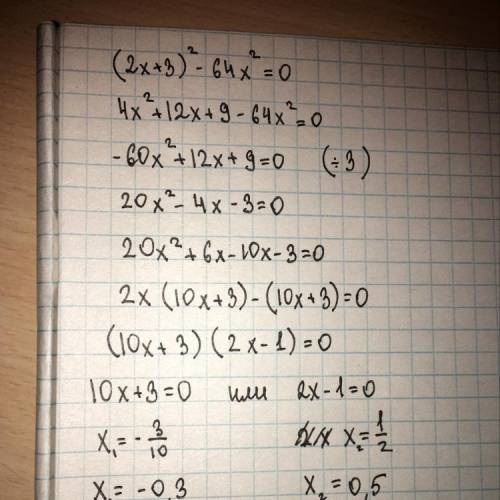 (2x+3)² - 64x² = 0
4x² + 12x + 9 - 64x² = 0
-60x² + 12x + 9 = 0 (÷3)
20x² - 4x - 3 = 0
20x² + 6x - 10x - 3 = 0
2x (10x+3) - (10x+3) = 0
(10x+3) (2x-1) = 0
10x+3=0 или 2x-1=0
x₁ = -3/10 x₂ = 1/2
x₁ = -0,3 x₂ = 0,5